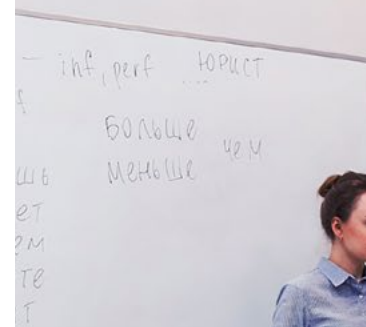 – inf, perf юрист
f
больше
меньше чем
шь
ет
ем
те
т